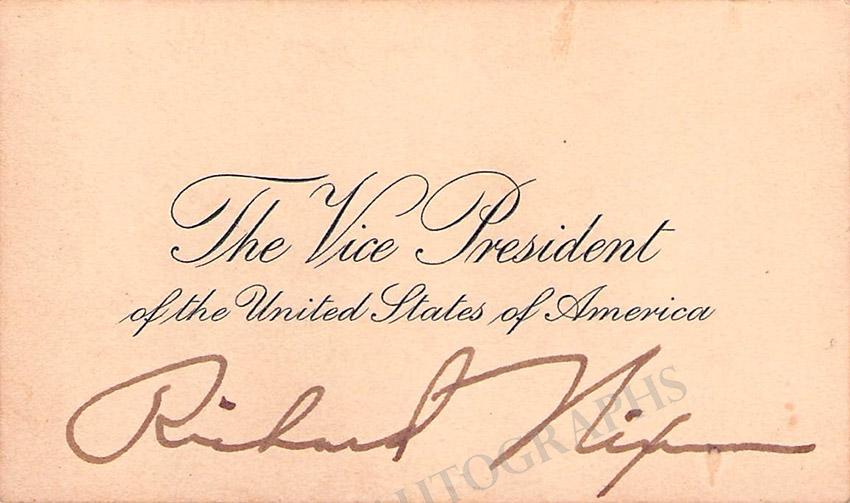 The Vice President
of the United States of America
Richard Nixon
AUTOGRAPHS